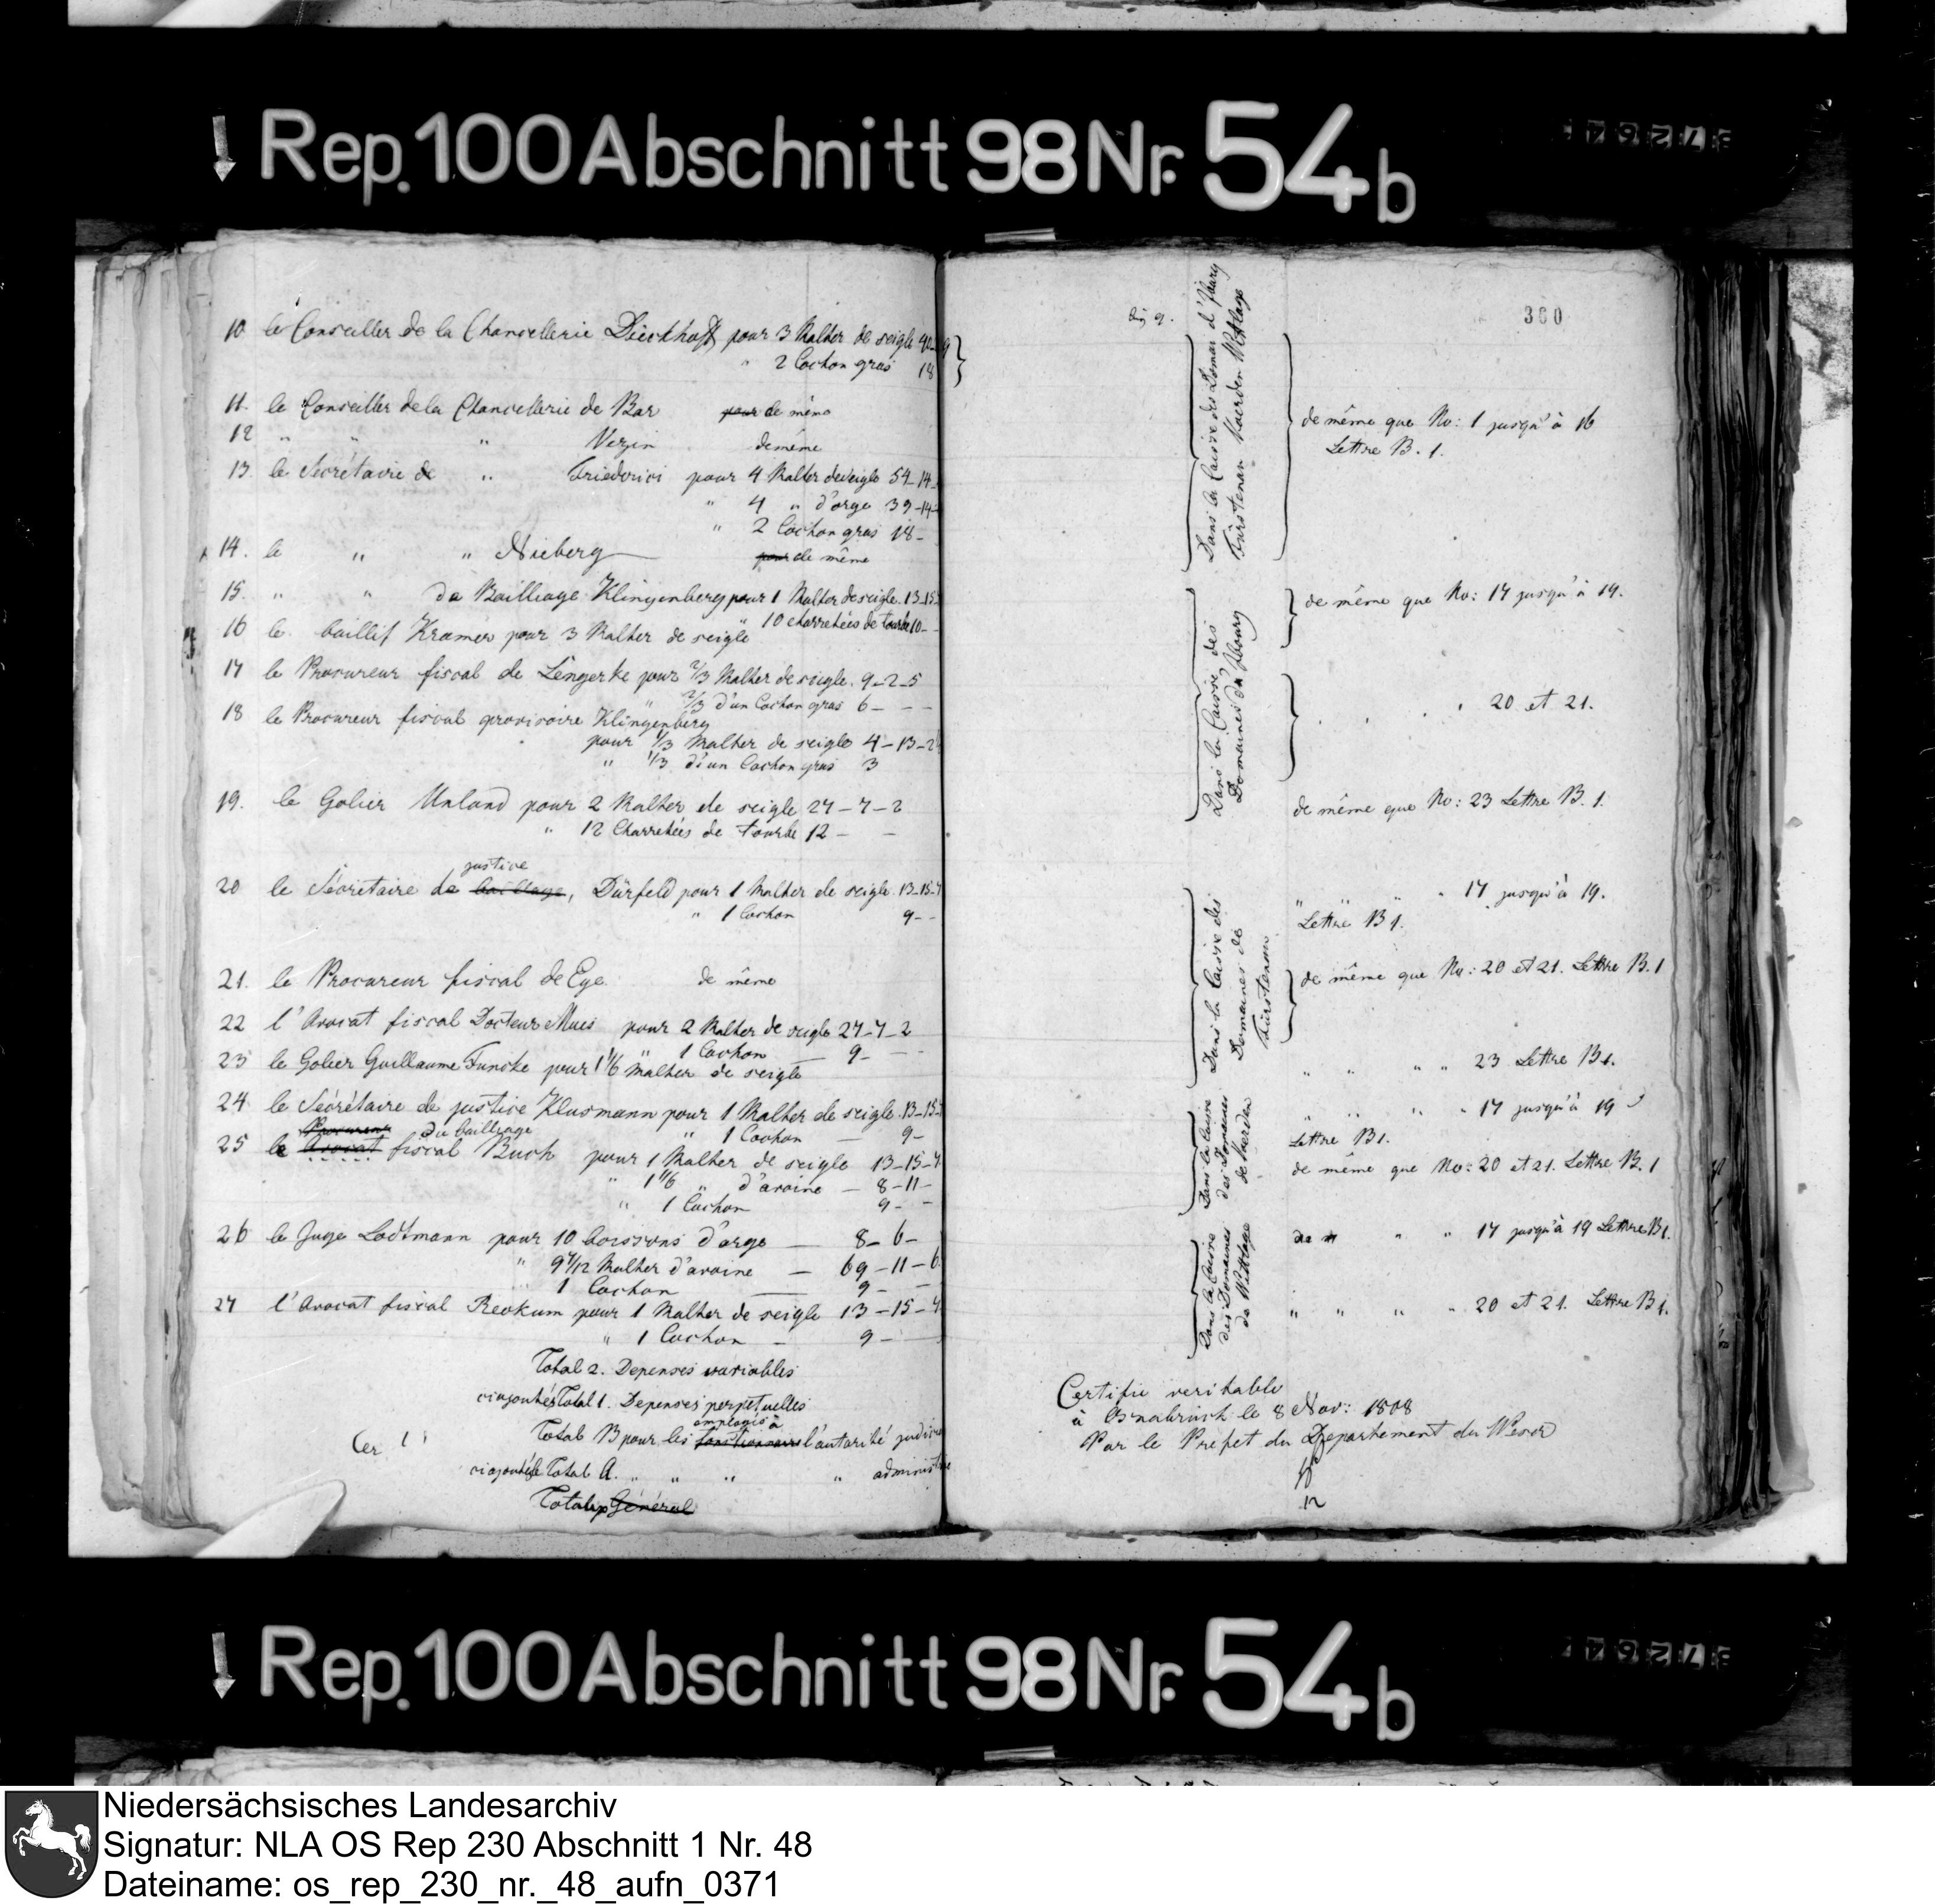 Rep. 100 Abschnitt 98 Nr. 54b
10 le Conseiller de la Chancellerie Dückhoff pour 3 Malter de seigle
" 2 Cochon gras 18
11. le Conseiller de la Chancellerie de Bar pour de même
12 " " " Vezin de même
13. le Secrétaire de " Friederici pour 4 Malter de seigle 54-14-
" 4 " d'orge 39-14-
" 2 Cochon gras 18-
14. le " " Nieberg pour de même
15. " " du Bailliage Klingenberg pour 1 Malter de seigle. 13-15
" 10 charretées de tourbe 10-
16 le bailif Kramer pour 3 Malter de seigle
17 le Procureur fiscal de Lengerke pour 2/3 Malter de seigle. 9-2-5
" 2/3 d'un Cochon gras 6---
18 le Procureur fiscal provisoire Klingenberg
pour 1/3 Malter de seigle 4-13-2
" 1/3 d'un Cochon gras 3
19. le Golier Unland pour 2 Malter de seigle 27-7-2
" 12 Charretées de tourbe 12 - -
justice
20 le Sécrétaire de bailliage, Dürfeld pour 1 Malter de seigle. 13-15-7
" 1 Cochon 9--
21. le Procureur fiscal de Eye de même
22 l'Avocat fiscal Docteur Mues pour 2 Malter de seigle 27-7-2
" 1 Cochon — 9- --
23 le Golier Guillaume Funcke pour 1 1/6 Malter de seigle
24 le Sécrétaire de justice Klusmann pour 1 Malter de seigle. 13-15-
" 1 Cochon — 9-
Procureur du bailliage
25 le Avocat fiscal Buch pour 1 Malter de seigle 13-15-7
" 1 1/6 " d'avoine — 8-11-
" 1 Cochon 9- -
26 le Juge Lodtmann pour 10 boissons d'orge — 8-6-
" 9 7/12 Malter d'avoine — 69-11-6
" 1 Cochon — 9- -
27 l'Avocat fiscal Reckum pour 1 Malter de seigle 13-15-7
" 1 Cochon — 9-
Total 2. Depenses variables
ciajoutés Total 1. Depenses perpetuelles
employés à
Total B pour les fonctionnaires l'autorité
Total A. " " " "
Total Général
360
Dans la Caisse des Domaines d'Iburg
Fürstenau Voerden Wittlage
de même que No: 1 jusqu'à 16
Lettre B. 1.
Dans la Caisse des
Domaines du Iburg
de même que No: 17 jusqu'à 19.
" " " " 20 et 21.
de même que No: 23 Lettre B. 1.
Dans la Caisse des
Domaines de
Fürstenau
" " " " 17 jusqu'à 19.
Lettre B 1.
de même que No: 20 et 21. Lettre B. 1
" " " " 23 Lettre B 1.
Dans la Caisse
des Domaines
de Voerden
" " " " 17 jusqu'à 19
Lettre B 1.
de même que No: 20 et 21. Lettre B. 1
Dans la Caisse
des Domaines
de Wittlage
" " 17 jusqu'à 19 Lettre B 1.
" " " " 20 et 21. Lettre B 1.
Certifie veritable
à Osnabrück le 8 Nov: 1808
Par le Prefet du Departement du Weser
Rep. 100 Abschnitt 98 Nr. 54b
Niedersächsisches Landesarchiv
Signatur: NLA OS Rep 230 Abschnitt 1 Nr. 48
Dateiname: os_rep_230_nr._48_aufn_0371